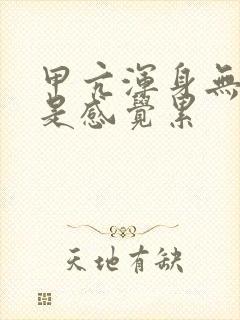 甲亢渾身無
是感覺累
天地有缺